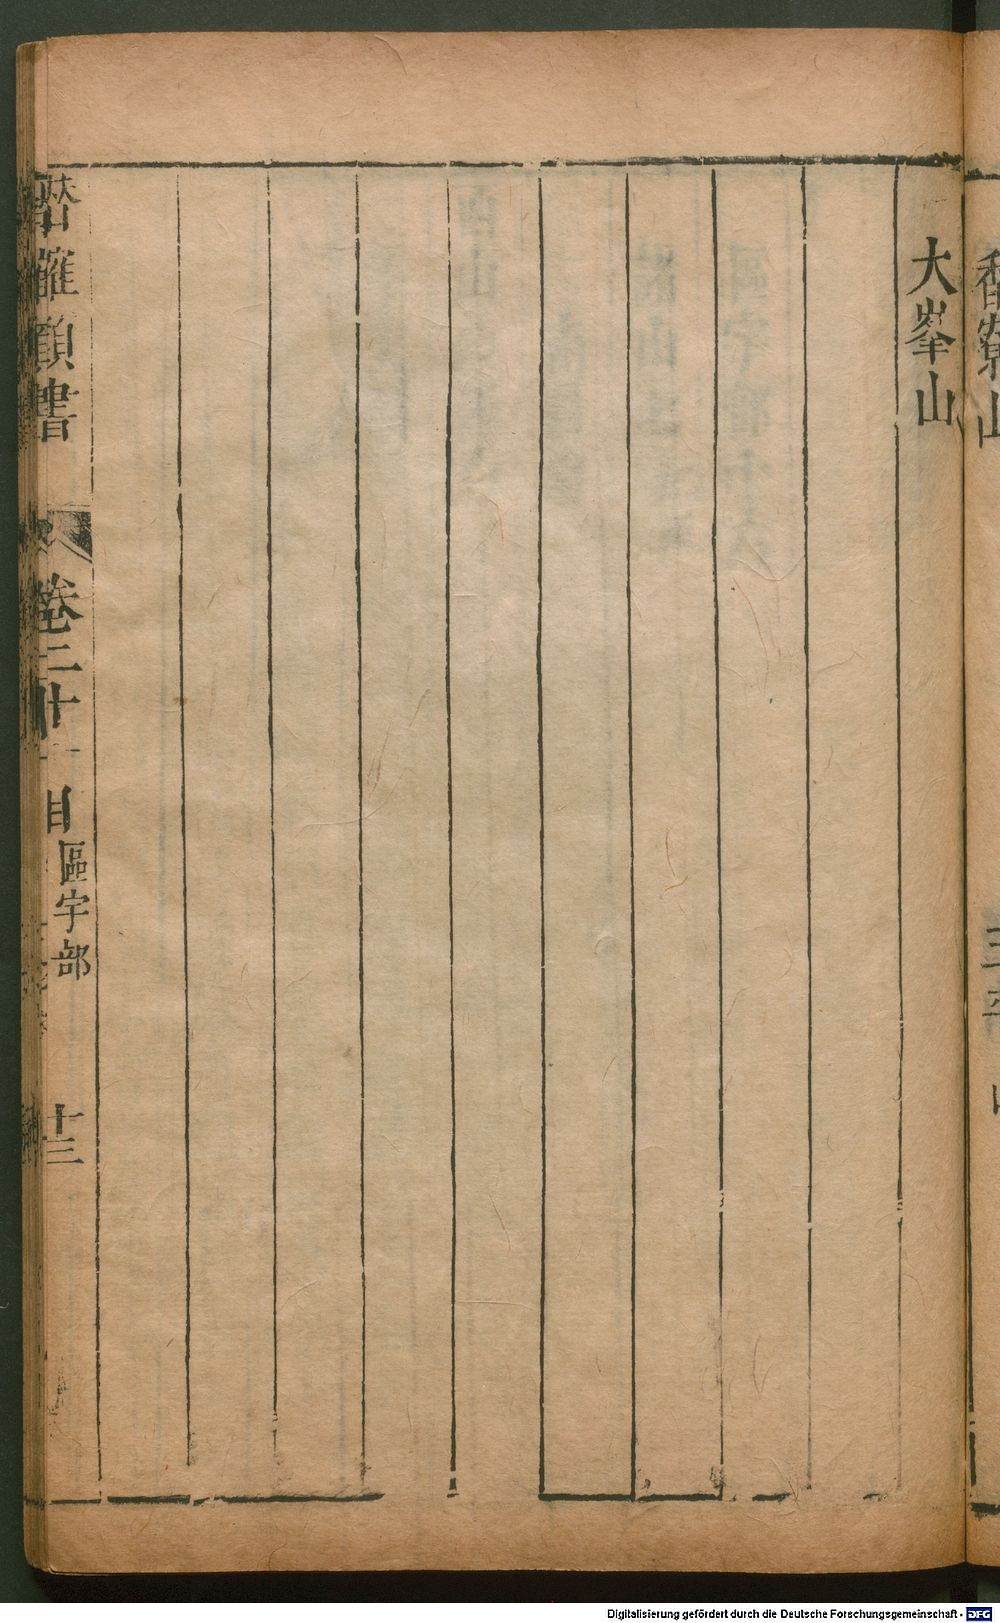 大峯山
潛確類書
卷二十一目
區宇部
十三
Digitalisierung gefördert durch die Deutsche Forschungsgemeinschaft - DFG